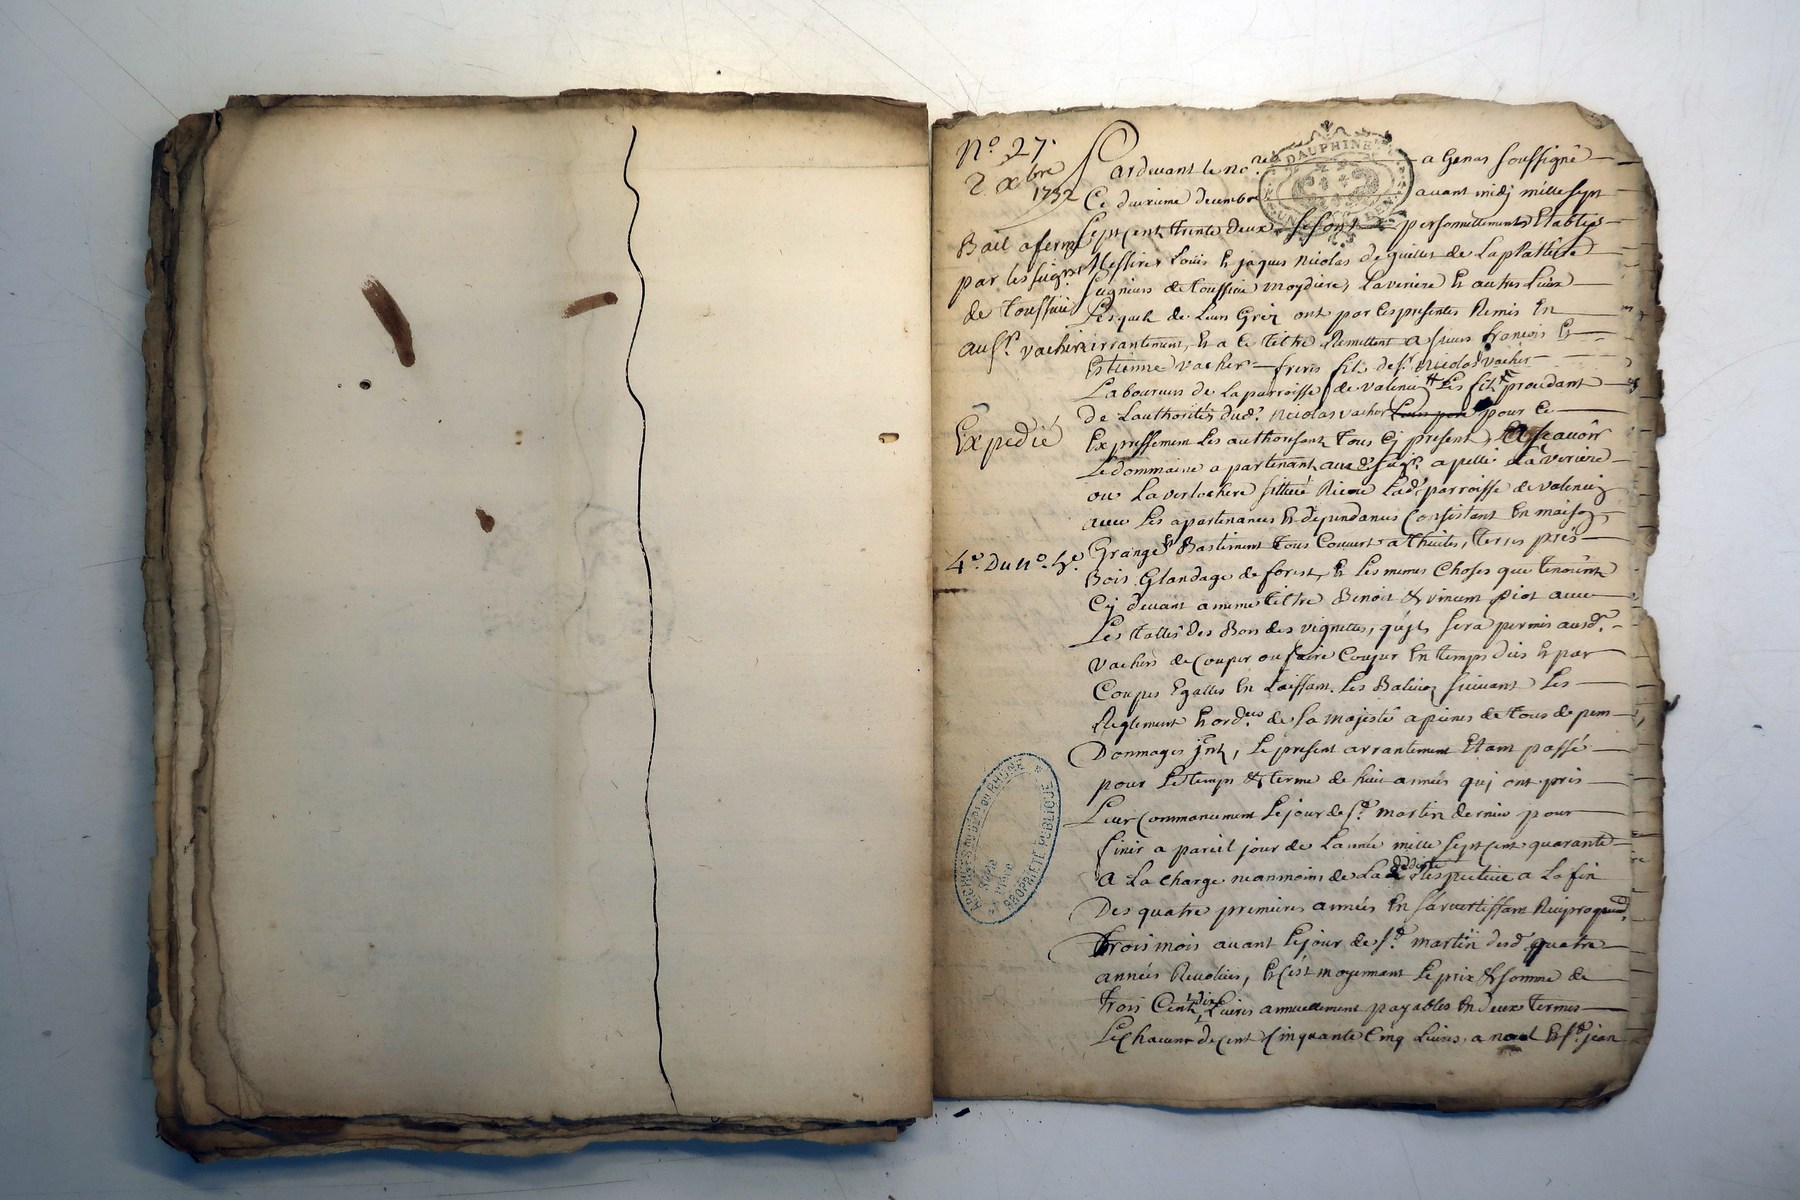 N.o 27.
2 xbre
1732
Bail a ferme
par les seigrs
de Toussieu
au Sr. vacher
Expedié
4.e Du n.o 5.e
Pardevant le no.re a Genas soussigné
Ce deuxieme decembre avant midj mille sept
Sept cent trente deux se sont personnellements Etablis
Messires Loüis Et jaques Nicolas de guillet de La platiere
Seigneurs de toussieu moydieres, Laveriere Et autres Lieux
Lesquels de Leurs Gréz ont par Ces presentes Remis En
arrantement, Et a Ce tiltre Remettent a sieurs francois Et
Estienne vacher freres fils de sr. Nicolas vacher
Laboureurs de La parroisse de valencin Les fils procedant
de Lauthorité dud. Nicolas vacher Leur pere pour Ce
Expressement Les authorisant tous Cy present, Asçavoir
Le dommaine apartenant aud. seigrs apellé La veriere
ou La verlachere sittué Riere Lad. parroisse de valencin
avec Les apartenances Et dependances Consistant En maison,
Grange Et Bastiment tous Couvert a thuiles, terres prés
Bois Glandage de forest, Et Les memes Choses que tenoint
Cy devant a meme tiltre Benoit & vincent piot avec
Les tailles des Bois des vignettes, qu'jl sera permis ausd.
vachers de Couper ou faire Couper En temps deus Et par
Coupes Egalles En Laissant Les Balivoz suivant Les
Reglement Et ord.ces de sa majesté a peines de tous depens
Dommages jnts, Le present arrantement Etant passé
pour Le temps & terme de huit années quj ont pris
Leur Commancement Le jour de st. martin dernier pour
finir a pareil jour de Lannée mille sept Cent quarante
A La Charge neanmoins de La dedite Respective a La fin
Des quatre premieres années En s'avertissant Reciproquemt.
trois mois avant Le jour de st. martin desd. quatre
années Revolües, Et C'est moyennant Le prix & somme de
trois Cent dix Livres annuellement payables En deux termes
Le Chacun de Cent Cinquante Cinq Livres, a noel Et st. jean
DAUPHINE
ARCHIVES DU DÉPT DU RHÔNE
PROPRIÉTÉ PUBLIQUE